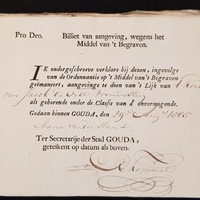 Pro Deo. Billiet van aangeving, wegens het
Middel van 't Begraven.
IK ondergeschreeve verklare bij dezen, ingevolge
van de Ordonnantie op 't Middel van 't Begraven
geëmaneert, aangevinge te doen van 't Lijk van
van Jacob de
als gehorende onder de Classis van d' onvermogende.
Gedaan binnen GOUDA, den 29 Aug 1805
Ter Secretarije der Stad GOUDA,
geteikent op datum als boven.